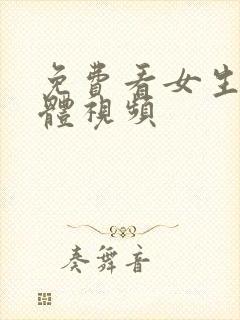 免費看女生
體視頻
奏舞音